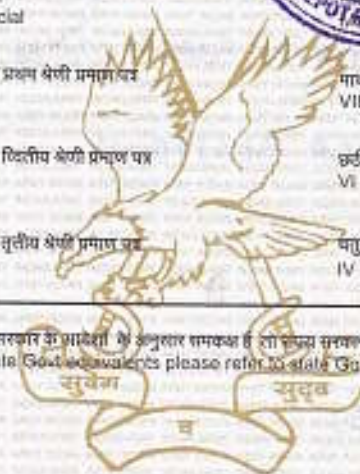 cial
प्रथम श्रेणी प्रमाण पत्र
VIII
द्वितीय श्रेणी प्रमाण पत्र
VI
तृतीय श्रेणी प्रमाण पत्र
IV
सरकार के आदेशों के अनुसार समकक्ष है तो कृपया
te Govt equivalents please refer to state Go
सुवेग सुदृढ
व